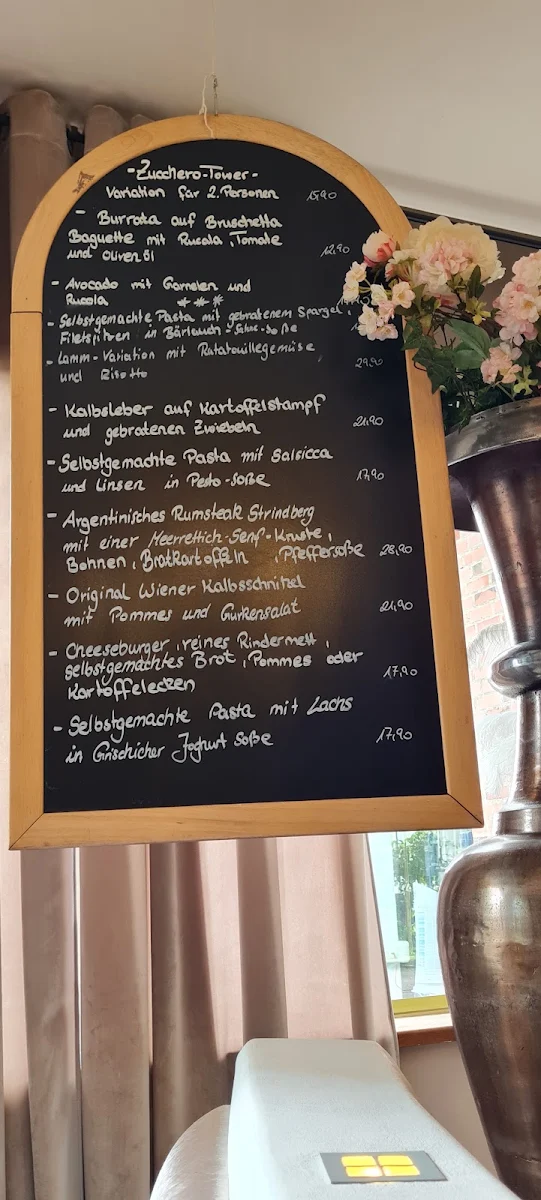 -Zucchero-Tower-
Variation für 2. Personen 15,90
- Burrata auf Bruschetta
Baguette mit Rucola, Tomate
und Olivenöl 12,90
- Avocado mit Garnelen und
Rucola
***
- Selbstgemachte Pasta mit gebratenem Spargel,
Filetspitzen in Bärlauch-Sahne-Soße
- Lamm-Variation mit Ratatouillegemüse,
und Risotto 29,90
- Kalbsleber auf Kartoffelstampf
und gebratenen Zwiebeln 21,90
- Selbstgemachte Pasta mit Salsicca
und Linsen in Pesto-Soße 17,90
- Argentinisches Rumsteak Strindberg
mit einer Meerrettich-Senf-Kruste,
Bohnen, Bratkartoffeln, Pfeffersoße 28,90
- Original Wiener Kalbsschnitzel
mit Pommes und Gurkensalat 21,90
- Cheeseburger, reines Rindermett,
selbstgemachtes Brot, Pommes oder
Kartoffelecken 17,90
- Selbstgemachte Pasta mit Lachs
in Grischicher Joghurt Soße 17,90